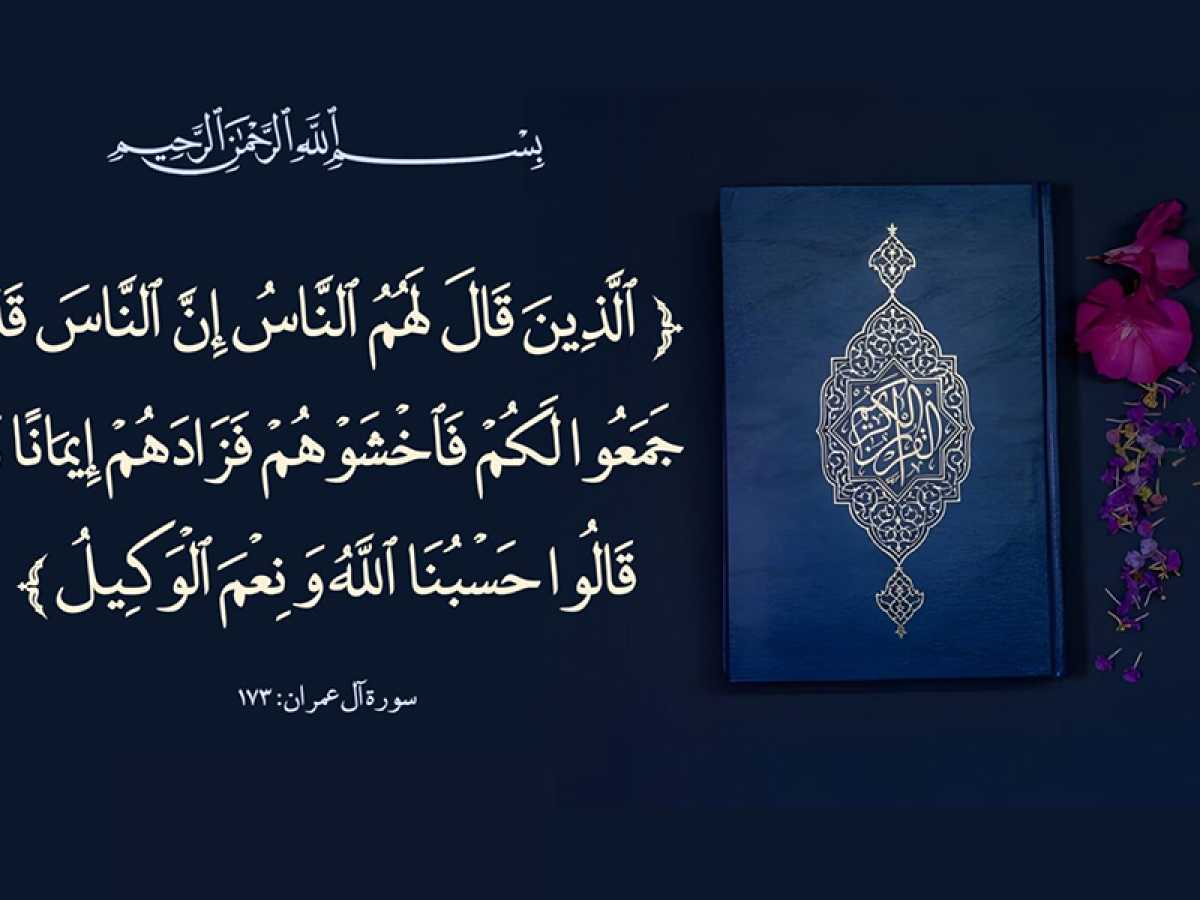 بِسْمِ ٱللَّهِ ٱلرَّحْمَٰنِ ٱلرَّحِيمِ
﴿ ٱلَّذِينَ قَالَ لَهُمُ ٱلنَّاسُ إِنَّ ٱلنَّاسَ
جَمَعُوا لَكُمْ فَٱخْشَوْهُمْ فَزَادَهُمْ إِيمَانًا
قَالُوا حَسْبُنَا ٱللَّهُ وَنِعْمَ ٱلْوَكِيلُ ﴾
سورة آل عمران: ١٧٣
القرآن الكريم